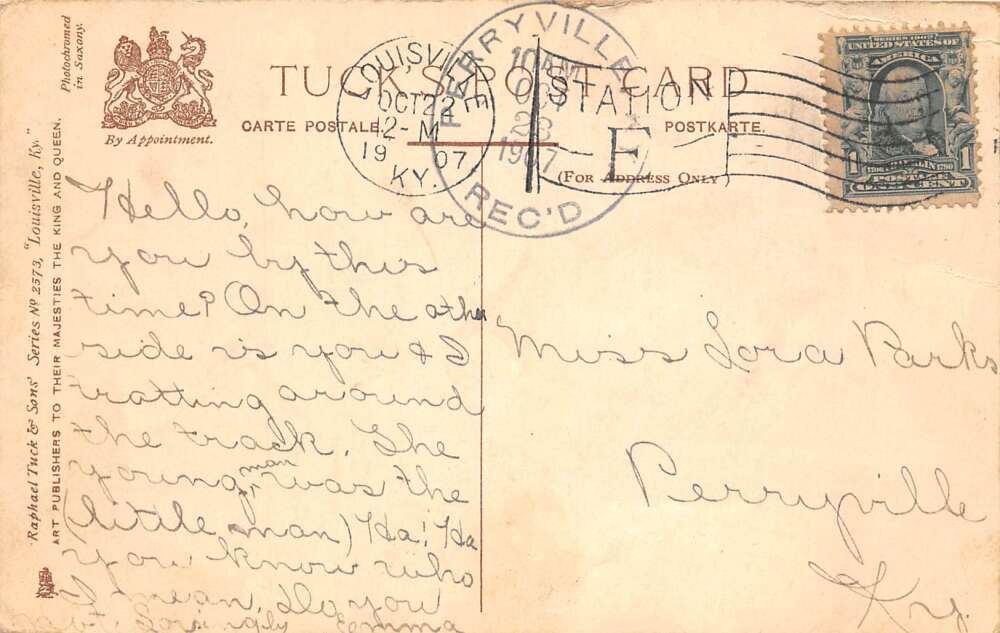 Photochromed
in Saxony.
By Appointment.
TUCK'S POST CARD
CARTE POSTALE.
POSTKARTE.
(For Address Only)
LOUISVILLE
OCT 22
2- M
19 07
KY.
PERRYVILLE
10 AM
OCT
23
1907
REC'D
STATION
E
SERIES 1902
UNITED STATES OF
AMERICA
1 1
POSTAGE
ONE CENT
Raphael Tuck & Sons' Series No 2573, "Louisville, Ky."
ART PUBLISHERS TO THEIR MAJESTIES THE KING AND QUEEN.
Hello, how are
you by this
time? On the other
side is you & I
trotting around
the track. The
young man was the
(little man) Ha! Ha
you know who
I mean. Do you
Lovingly Emma
Miss Lora Parks
Perryville
Ky.